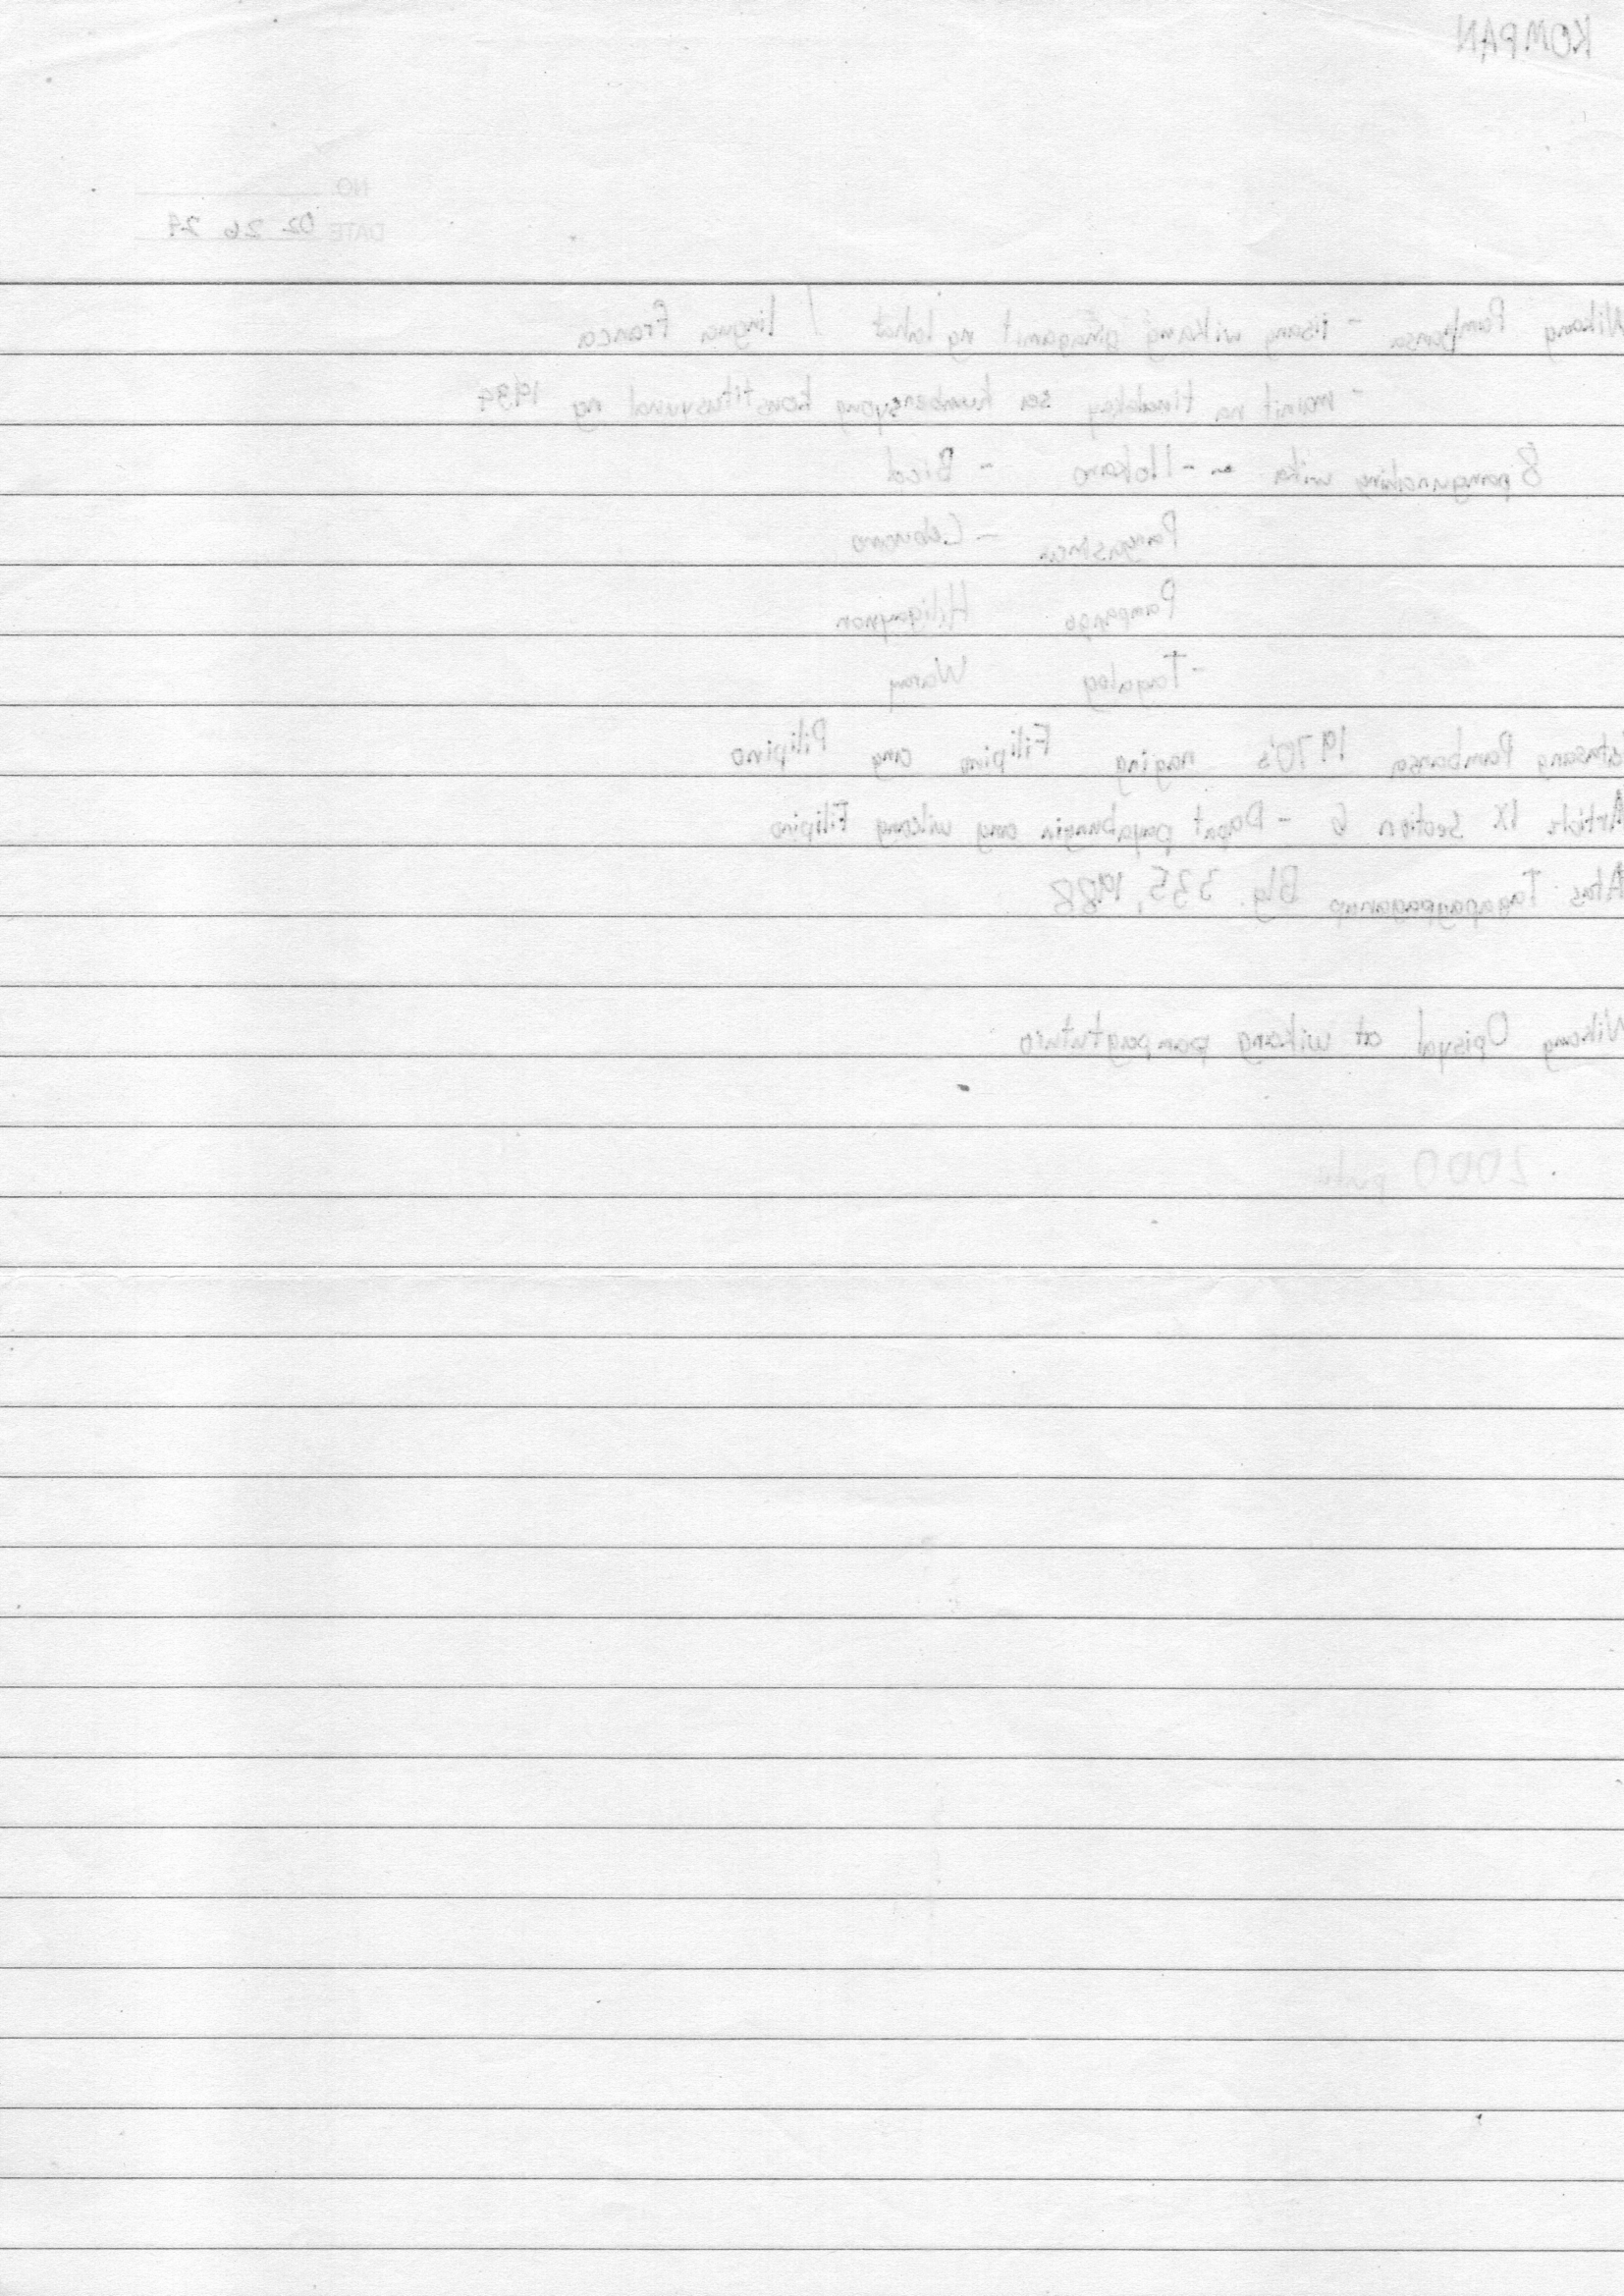 KOMPAN
NO.
DATE 02 26 24
Wikang Pambansa - iisang wikang ginagamit ng lahat / lingua franca
- mainit na tinalakay sa kumbensyong konstitusyunal ng 1934
8 pangunahing wika - Ilokano - Bicol
Pangasinan - Cebuano
Pampango Hiligaynon
- Tagalog Waray
Pambansa 1970's naging Filipino ang Pilipino
Article IX Section 6 - Dapat payabungin ang wikang Filipino
Atas Tagapagpaganap Blg. 335, 1988
Wikang Opisyal at wikang pampagtuturo
2000